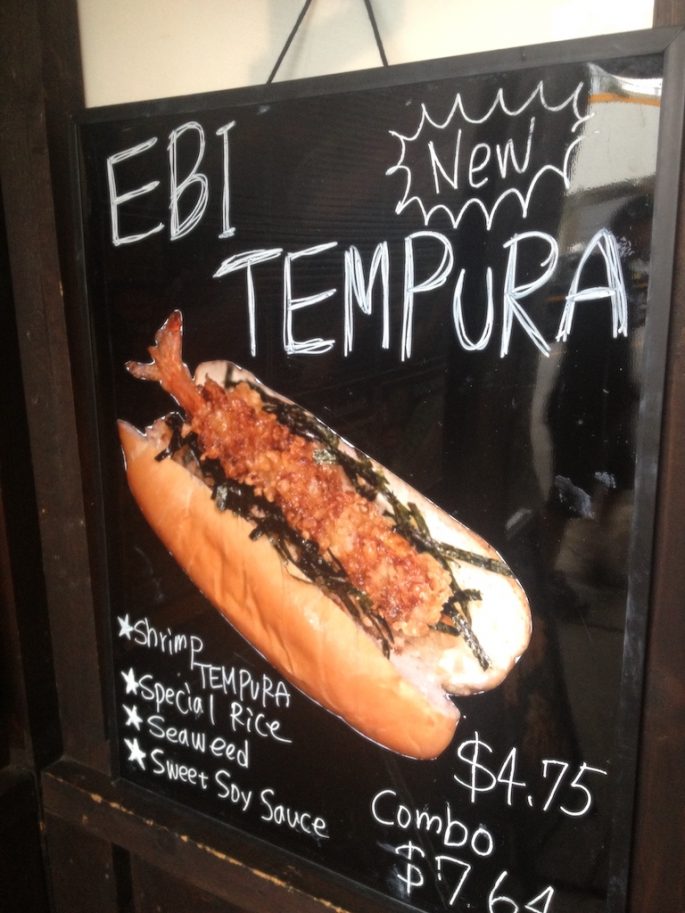 New
EBI
TEMPURA
★Shrimp
TEMPURA
★Special Rice
★Seaweed
★Sweet Soy Sauce
$4.75
Combo
$7.64